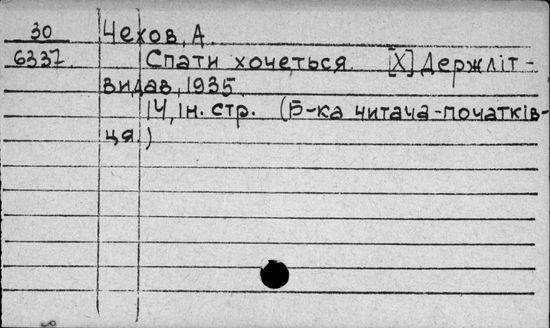 30 Чехов, А.
6337 Спати хочеться. [Х] Держліт-
видав, 1935.
14, ІН. стр. (Б-ка читача-початків-
ця.)